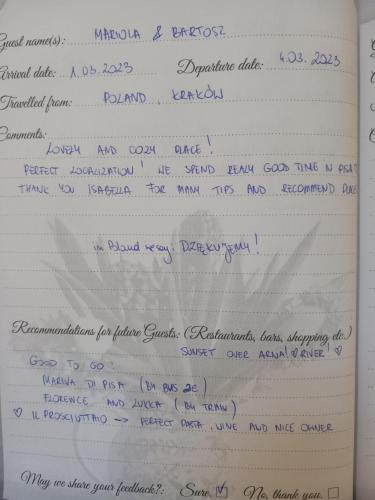 Guest name(s): MARIOLA & BARTOSZ
Arrival date: 1.03.2023 Departure date: 4.03.2023
Travelled from: POLAND, KRAKÓW
Comments:
LOVELY AND COZY PLACE!
PERFECT LOCALIZATION! WE SPEND REALY GOOD TIME IN PISA!
THANK YOU ISABELLA FOR MANY TIPS AND RECOMMEND PLACES
in Poland we say: DZIĘKUJEMY!
Recommendations for future Guests: (Restaurants, bars, shopping etc.)
SUNSET OVER ARNA! ♡ RIVER! ♡
GOOD TO GO:
MARINA DI PISA (BY BUS 2€)
FLORENCE AND LUKKA (BY TRAIN)
♡ IL PROSCIUTTAIO -> PERFECT PASTA, WINE AND NICE OWNER
May we share your feedback?: Sure. ☑ No, thank you. ☐